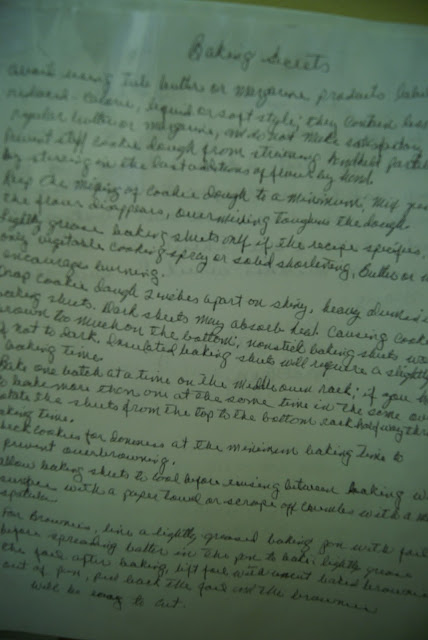 Baking Secrets
avoid using tub butter or margarine products label
reduced-calorie, liquid or soft style; they contain less
regular butter or margarine, and do not make satisfactory
prevent stiff cookie dough from straining handheld
by stirring in the last additions of flour by hand.
Keep the mixing of cookie dough to a minimum; mix
the flour disappears, overmixing toughens the dough.
Lightly grease baking sheets only if the recipe specifies,
only vegetable cooking spray or solid shortening, Butter or
encourage burning.
Drop cookie dough 2 inches apart on shiny, heavy
baking sheets. Dark sheets may absorb heat causing
brown to much on the bottom; nonstick baking sheets
if not to dark, Insulated baking sheets will require a slightly
baking time.
Bake one batch at a time on the middle oven rack; if you
to bake more then one at the same time in the same
rotate the sheets from the top to the bottom rack halfway
baking time.
Check cookies for doneness at the minimum baking time to
prevent overbrowning.
allow baking sheets to cool before reusing between baking
with a paper towel or scrape off crumbs with a
spatula.
For Brownies, line a lightly greased baking pan with foil
before spreading batter in the pan to bake; lightly grease
the foil after baking, lift foil with uncut baked
out of pan, peel back the foil and the brownies
will be easy to cut.